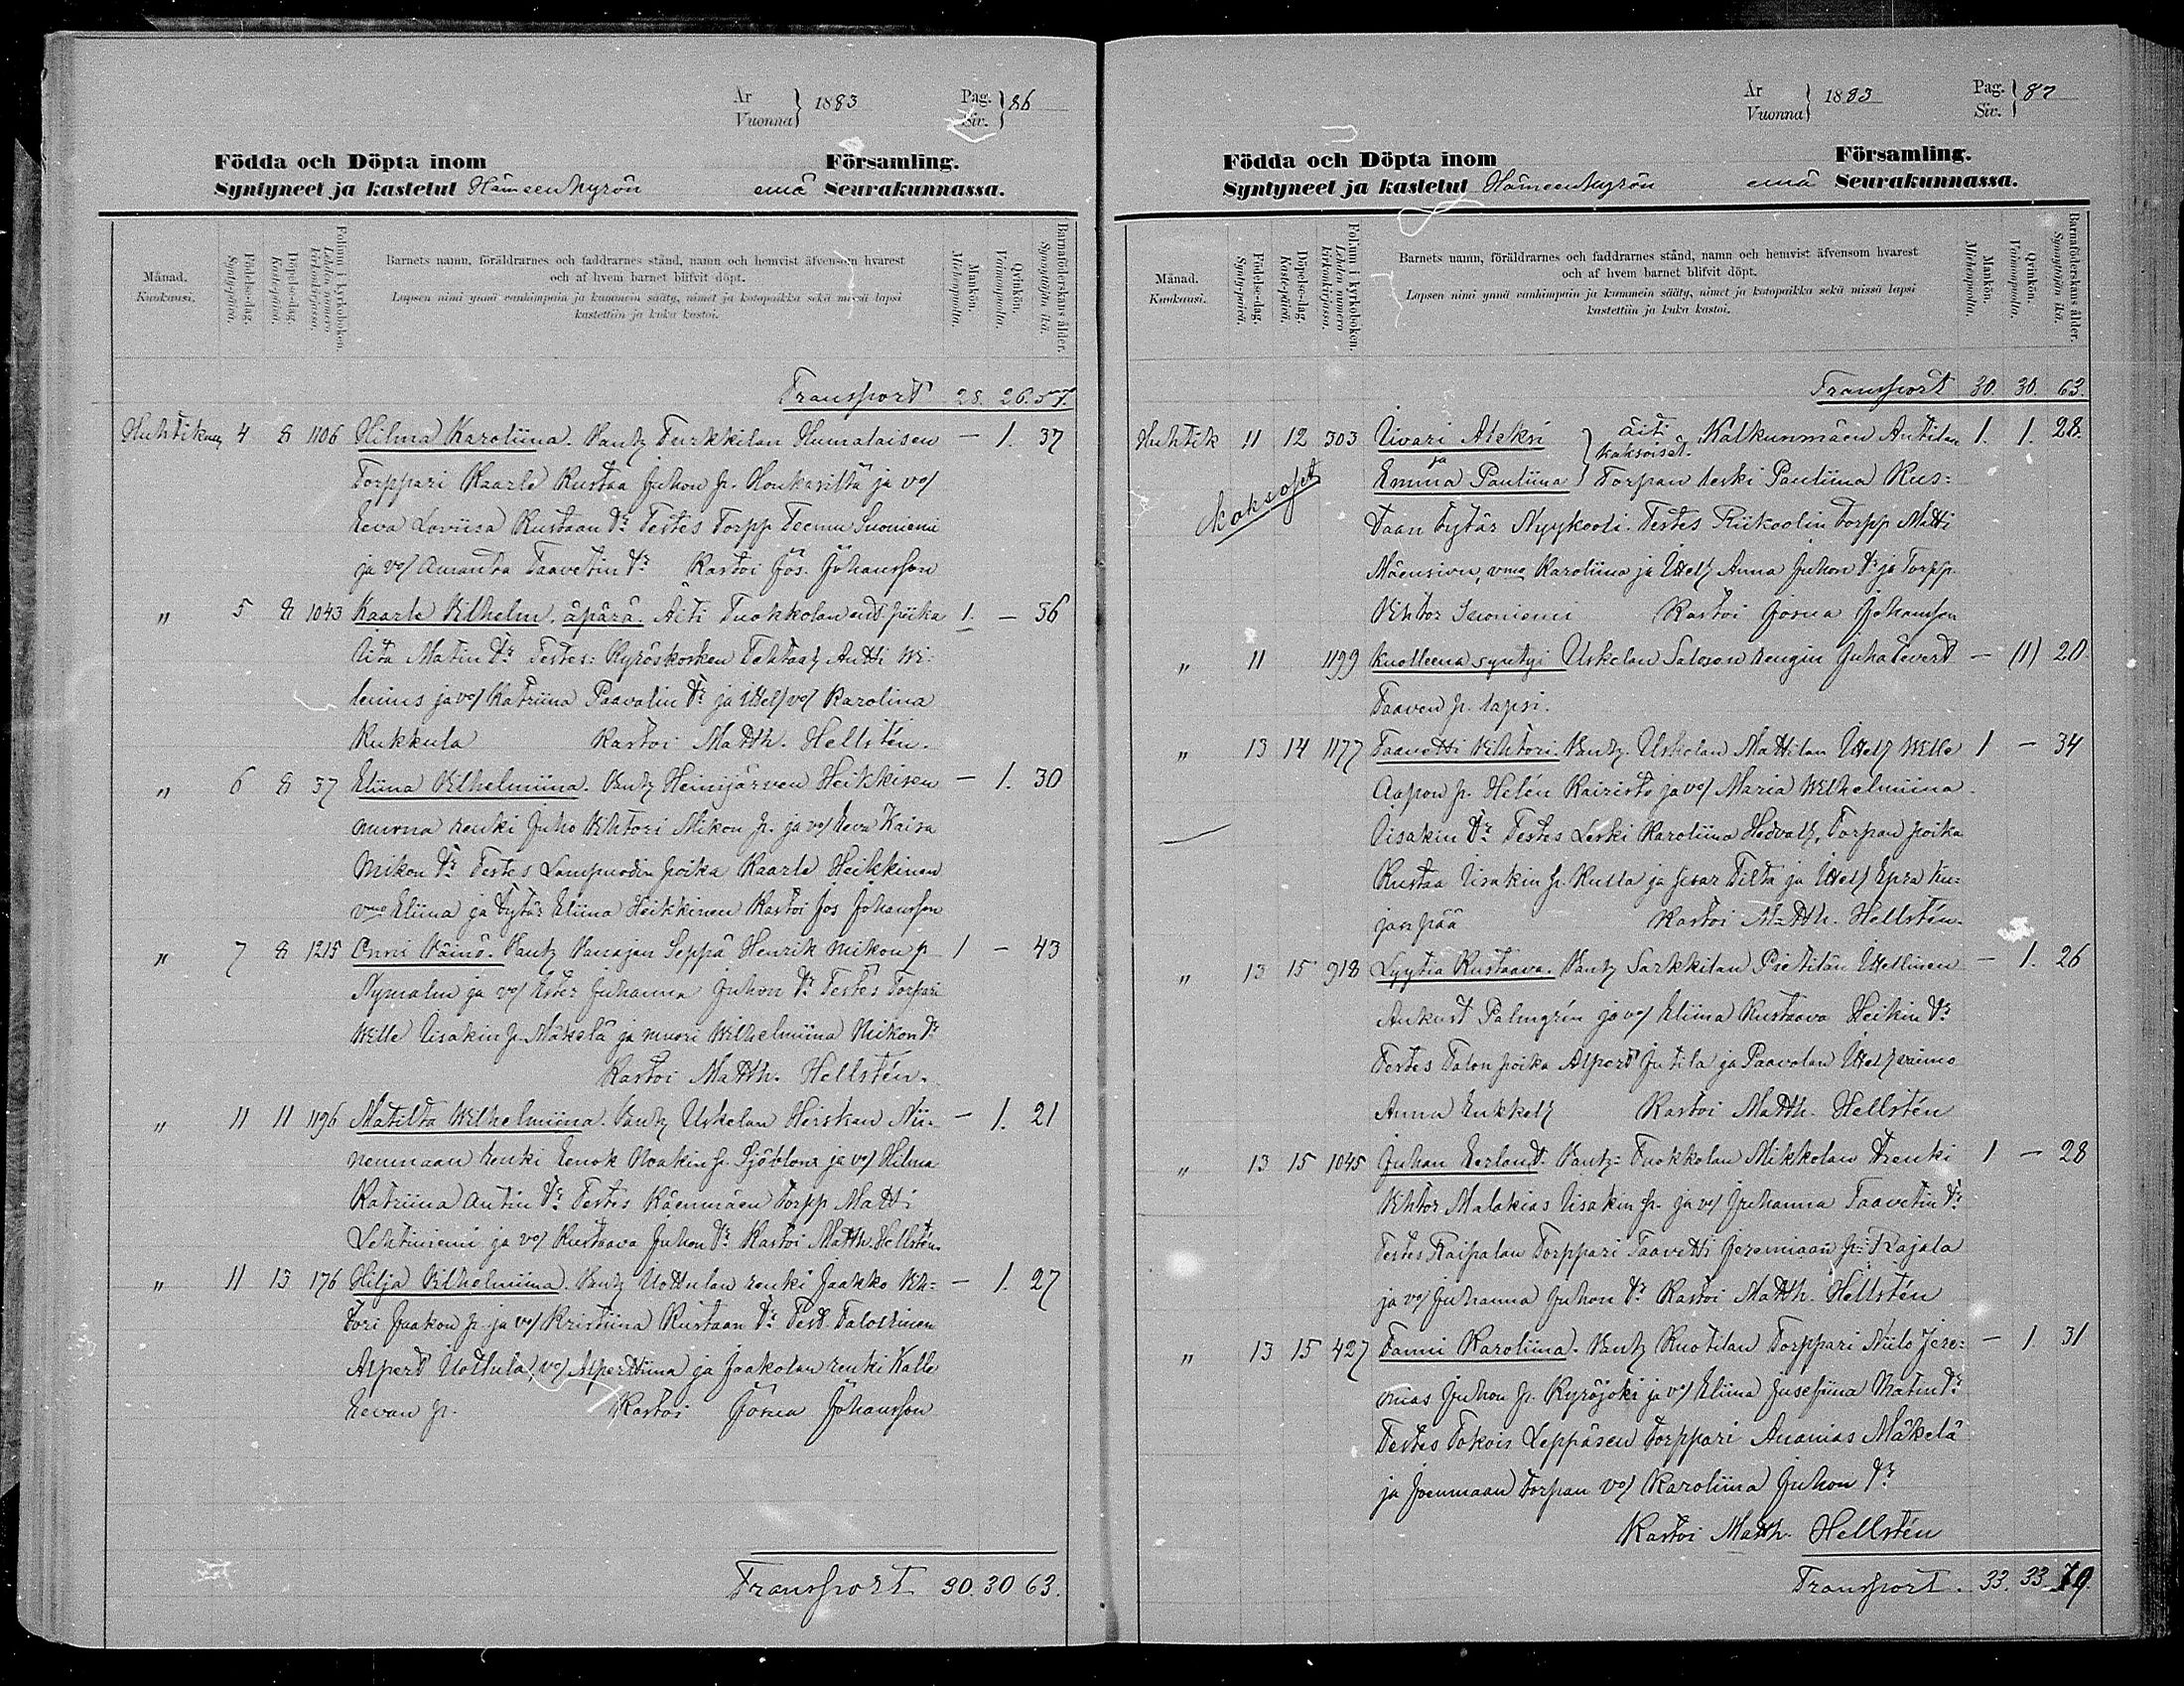 År
Vuonna } 1883
Pag.
Siv. } 86
Födda och Döpta inom Församling.
Syntyneet ja kastetut Hämeenkyrön emä Seurakunnassa.
Månad.
Kuukausi.
Födelse-dag.
Syntypäivä.
Döpelse-dag.
Kastepäivä.
Folium i kyrkoboken.
Lehden numero kirkonkirjassa.
Barnets namn, föräldrarnes och faddrarnes stånd, namn och hemvist äfvensom hvarest
och af hvem barnet blifvit döpt.
Lapsen nimi ynnä vanhimpain ja kummein sääty, nimet ja kotopaikka sekä missä lapsi
kastettiin ja kuka kastoi.
Mankön.
Miehenpuolta.
Qvinkön.
Vaimonpuolta.
Barnaföderskans ålder.
Synnyttäjän ikä.
Transport 28. 26. 57.
Huhtikuu 4 8 1106 Hilma Karoliina. Vanh Turkkilan Humalaisen — 1. 37
Torppari Kaarle Kustaa Juhon p. Honkasilta ja vo/
Eeva Loviisa Kustaan tr Testes Torpp Teemu Suoniemi
ja vo/ Amanta Taavetin tr Kastoi Jos. Johansson
" 5 8 1043 Kaarle Vilhelm. äpärä. Äiti Tuokkolan ent. piika 1. — 36
Iita Matin tr Testes: Kyröskosken Tehtaal Antti Wi-
lenius ja vo/ Katriina Paavalin tr ja Itsell vo/ Karolina
Kukkula Kastoi Matth. Hellstén.
" 6 8 37 Eliina Vilhelmiina. Vanh Heinijärven Heikkisen — 1. 30
muona renki Juho Vihtori Mikon p. ja vo/ Eeva Kaisa
Mikon tr Testes Lampuodin poika Kaarle Heikkinen
vmo Eliina ja tytär Eliina Heikkinen Kastoi Jos Johansson
" 7 8 1215 Onni Väinö. Vanh Vanajan Seppä Henrik Mikon p 1 — 43
Nymalm ja vo/ Ester Juhanna Juhon tr Testes Torpari
Wille Iisakin p. Mäkelä ja muori Wilhelmiina Mikon tr
Kastoi Matth. Hellstén.
" 11 11 1196 Matilta Wilhelmiina. Vanh Uskelan Heiskan Nii- — 1. 21
nenmaan renki Eenok Noakin p. Sjöblom ja vo/ Hilma
Katriina Antin tr Testes Käenmäen Torpp Matti
Lehtiniemi ja vo/ Kustaava Juhon tr Kastoi Matth. Hellstén.
" 11 13 176 Hilja Vilhelmiina. Vanh Uottulan renki Jaakko Vih- — 1. 27
tori Jaakon p. ja vo/ Kristiina Kustaan tr Test. Talollinen
Alpert Uottula, vo/ Alperttiina ja Jaakolan renki Kalle
Eevan p. Kastoi Josua Johansson
Transport 30. 30 63.
År
Vuonna } 1883
Pag.
Siv. } 87
Födda och Döpta inom Församling.
Syntyneet ja kastetut Hämeenkyrön emä Seurakunnassa.
Månad.
Kuukausi.
Födelse-dag.
Syntypäivä.
Döpelse-dag.
Kastepäivä.
Folium i kyrkoboken.
Lehden numero kirkonkirjassa.
Barnets namn, föräldrarnes och faddrarnes stånd, namn och hemvist äfvensom hvarest
och af hvem barnet blifvit döpt.
Lapsen nimi ynnä vanhimpain ja kummein sääty, nimet ja kotopaikka sekä missä lapsi
kastettiin ja kuka kastoi.
Mankön.
Miehenpuolta.
Qvinkön.
Vaimonpuolta.
Barnaföderskans ålder.
Synnyttäjän ikä.
Transport 30. 30. 63.
Huhtik 11 12 303 Iivari Aleksi } äiti Kalkunmäen Anttilan 1. 1. 28.
ja kaksoiset.
Emma Pauliina } Torpan leski Pauliina Kus-
Kaksoset
taan tytär Nyykooli. Testes Riikoolin torpp Matti
Mäensivu, vmo Karoliina ja Itsell Anna Juhon tr ja Torpp.
Vihtor Suoniemi Kastoi Josua Johansson
" 11 1199 Kuolleena syntyi Uskelan Saloson rengin Juha Evert — (1) 20.
Taaven p. lapsi.
" 13 14 1177 Taavetti Vihtori. Vanh. Uskelan Mattilan Itsell Wille 1 — 34
Aapon p. Helén Kairisto ja vo/ Maria Wilhelmiina
Iisakin tr Testes Leski Karoliina Hedvall, Torpan poika
Kustaa Iisakin p. Kulla ja sisar Tilta ja Itsell Epra Ku-
janpää Kastoi Matth. Hellstén.
" 13 15 918 Lyytia Kustaava. Vanh Sarkkilan Pietilän Itsellinen — 1. 26
Aukust Palmgrén ja vo/ Eliina Kustaava Heikin tr
Testes Talon poika Alpert Jutila ja Paavolan Itsell vaimo
Anna Enkkell Kastoi Matth. Hellstén
" 13 15 1045 Juhan Eerland. Vanh: Tuokkolan Mikkolan Trenki 1 — 28
Vihtor Malakias Iisakin p. ja vo/ Juhanna Taavetin tr
Testes Raipalan Torppari Taavetti Jeremiaan p: Rajala
ja vo/ Juhanna Juhon tr Kastoi Matth. Hellstén
" 13 15 427 Fanni Karoliina. Vanh Kuotilan Torppari Niilo Jere- — 1. 31
mias Juhon p. Kyröjoki ja vo/ Eliina Jusefiina Matin tr
Testes Tokois Leppäsen torppari Ananias Mäkelä
ja Joenmaan Torpan vo/ Karoliina Juhon tr
Kastoi Matth. Hellstén
Transport. 33. 33 79.